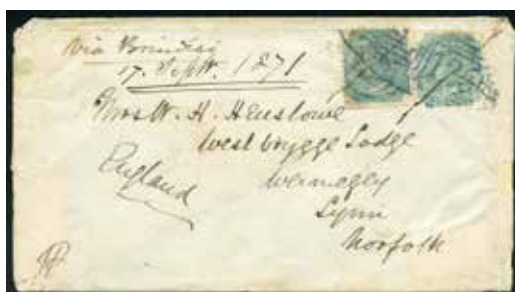 via Brindisi
17. Septr. 1871
Mrs W. H. Henslowe
West brygge Lodge
Wormegey
Lynn
Norfolk
England